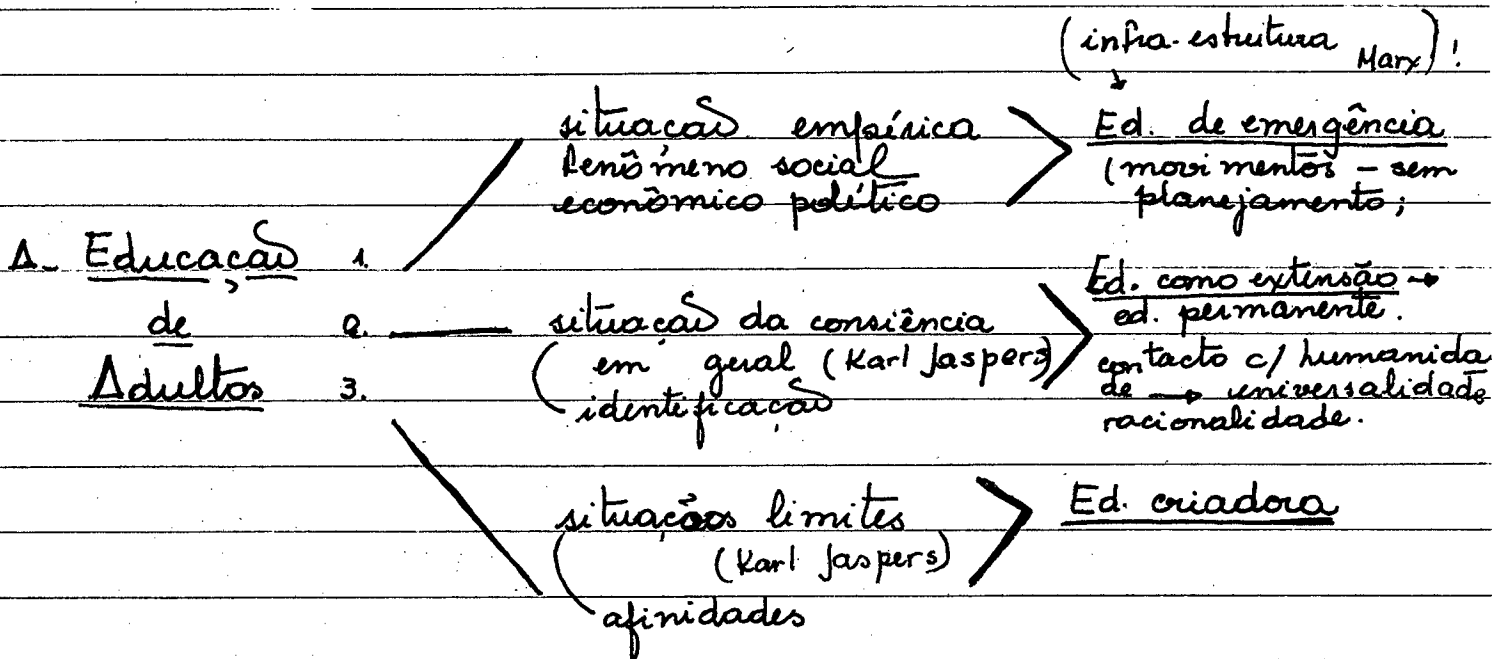 (infra-estrutura Marx)!
situação empírica
fenômeno social
econômico político
Ed. de emergência
(movimentos - sem
planejamento;
A- Educação 1.
de 2.
Adultos 3.
situação da consiência
em geral (Karl Jaspers)
identificação
Ed. como extensão →
ed. permanente.
contacto c/ humanida
de → universalidade
racionalidade.
situações limites
(Karl Jaspers)
afinidades
Ed. criadora